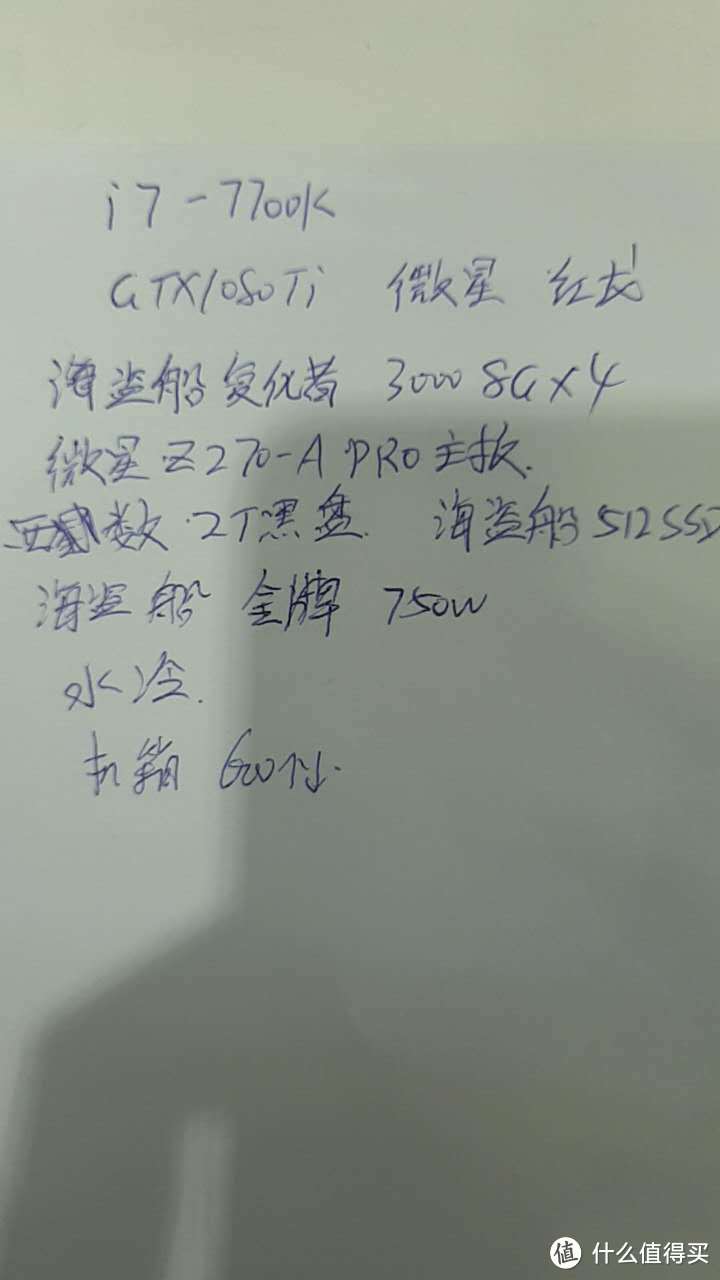 i7-7700K
GTX1080Ti 微星 红龙
海盗船 复仇者 3000 8G×4
微星 Z270-A PRO 主板.
西数 2T黑盘. 海盗船 512SSD
海盗船 金牌 750W
水冷.
机箱 600
值 什么值得买